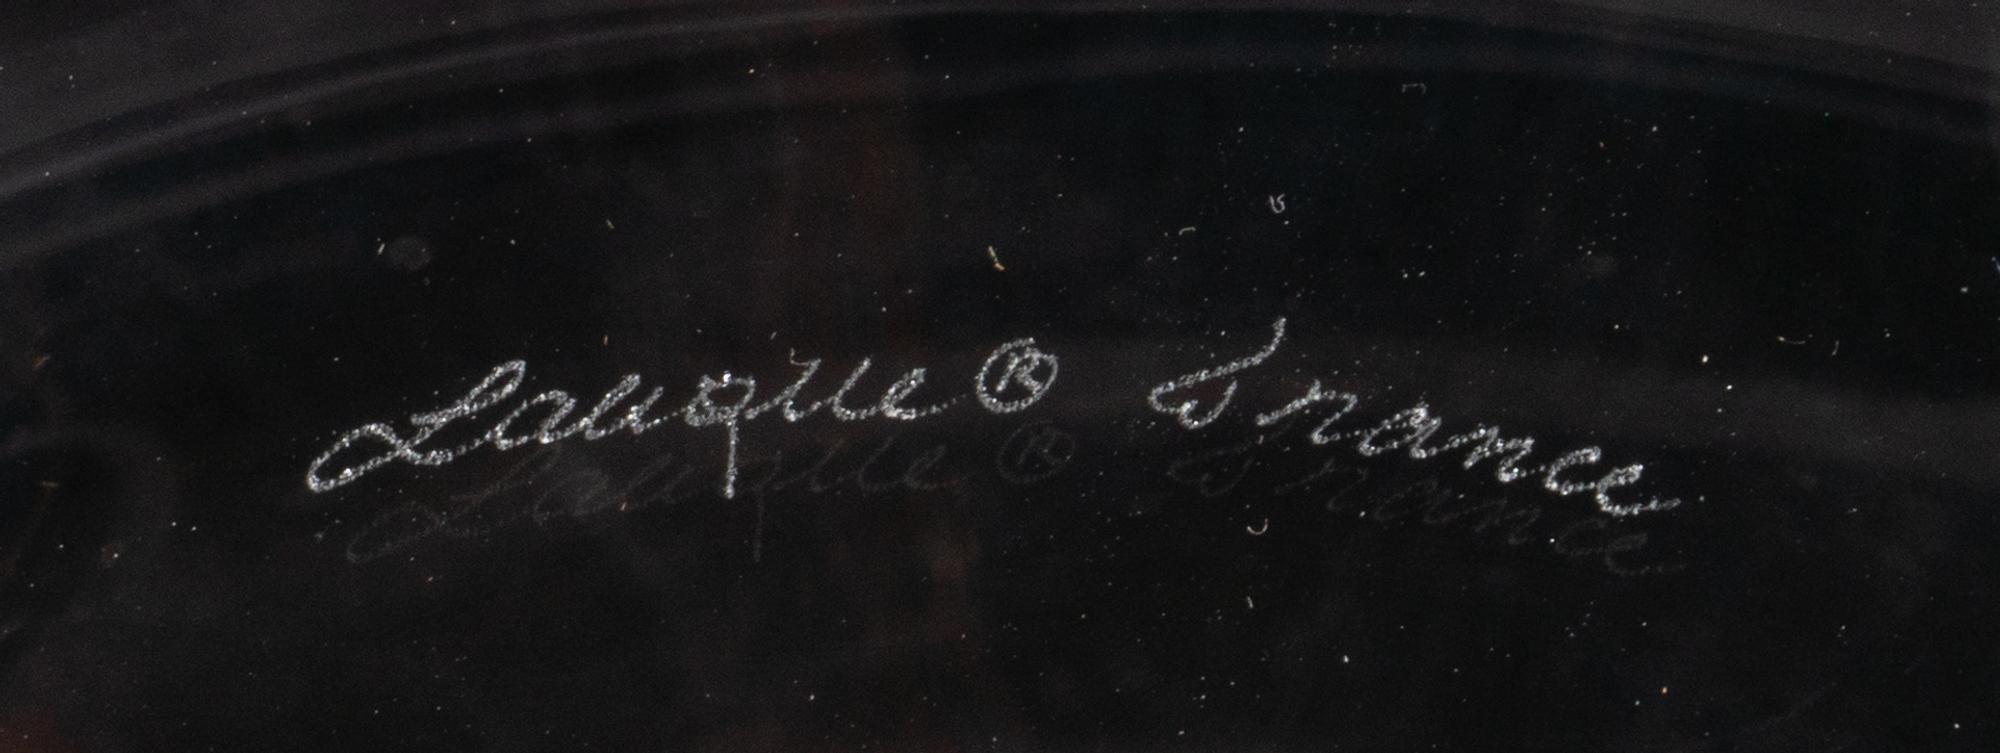 Lalique ® France